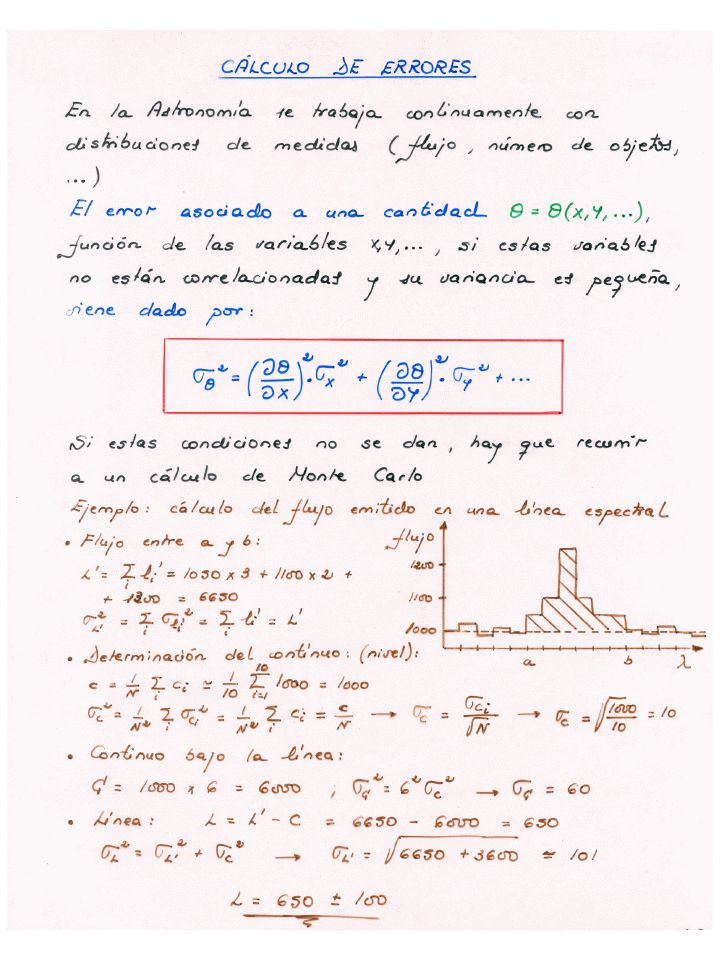 CÁLCULO DE ERRORES
En la Astronomía se trabaja continuamente con
distribuciones de medidas (flujo, número de objetos,
...)
El error asociado a una cantidad θ = θ(x,y,...),
función de las variables x,y,..., si estas variables
no están correlacionadas y su variancia es pequeña,
viene dado por:
σ_θ² = (∂θ/∂x)²·σ_x² + (∂θ/∂y)²·σ_y² + ...
Si estas condiciones no se dan, hay que recurrir
a un cálculo de Monte Carlo
Ejemplo: cálculo del flujo emitido en una línea espectral
• Flujo entre a y b:
L' = Σ_i l_i' = 1050 x 3 + 1100 x 2 +
+ 1300 = 6650
σ_L'² = Σ_i σ_li'² = Σ_i l_i' = L'
flujo
1200
1100
1000
a b λ
• Determinación del contínuo: (nivel):
c = 1/N Σ_i c_i ≃ 1/10 Σ_{i=1}^{10} 1000 = 1000
σ_c² = 1/N² Σ_i σ_ci² = 1/N² Σ_i c_i = c/N → σ_c = σ_ci/√N → σ_c = √(1000/10) = 10
• Contínuo bajo la línea:
C = 1000 x 6 = 6000 ; σ_C² = 6² σ_c² → σ_C = 60
• Línea: L = L' - C = 6650 - 6000 = 650
σ_L² = σ_L'² + σ_C² → σ_L' = √(6650 + 3600) ≃ 101
L = 650 ± 100